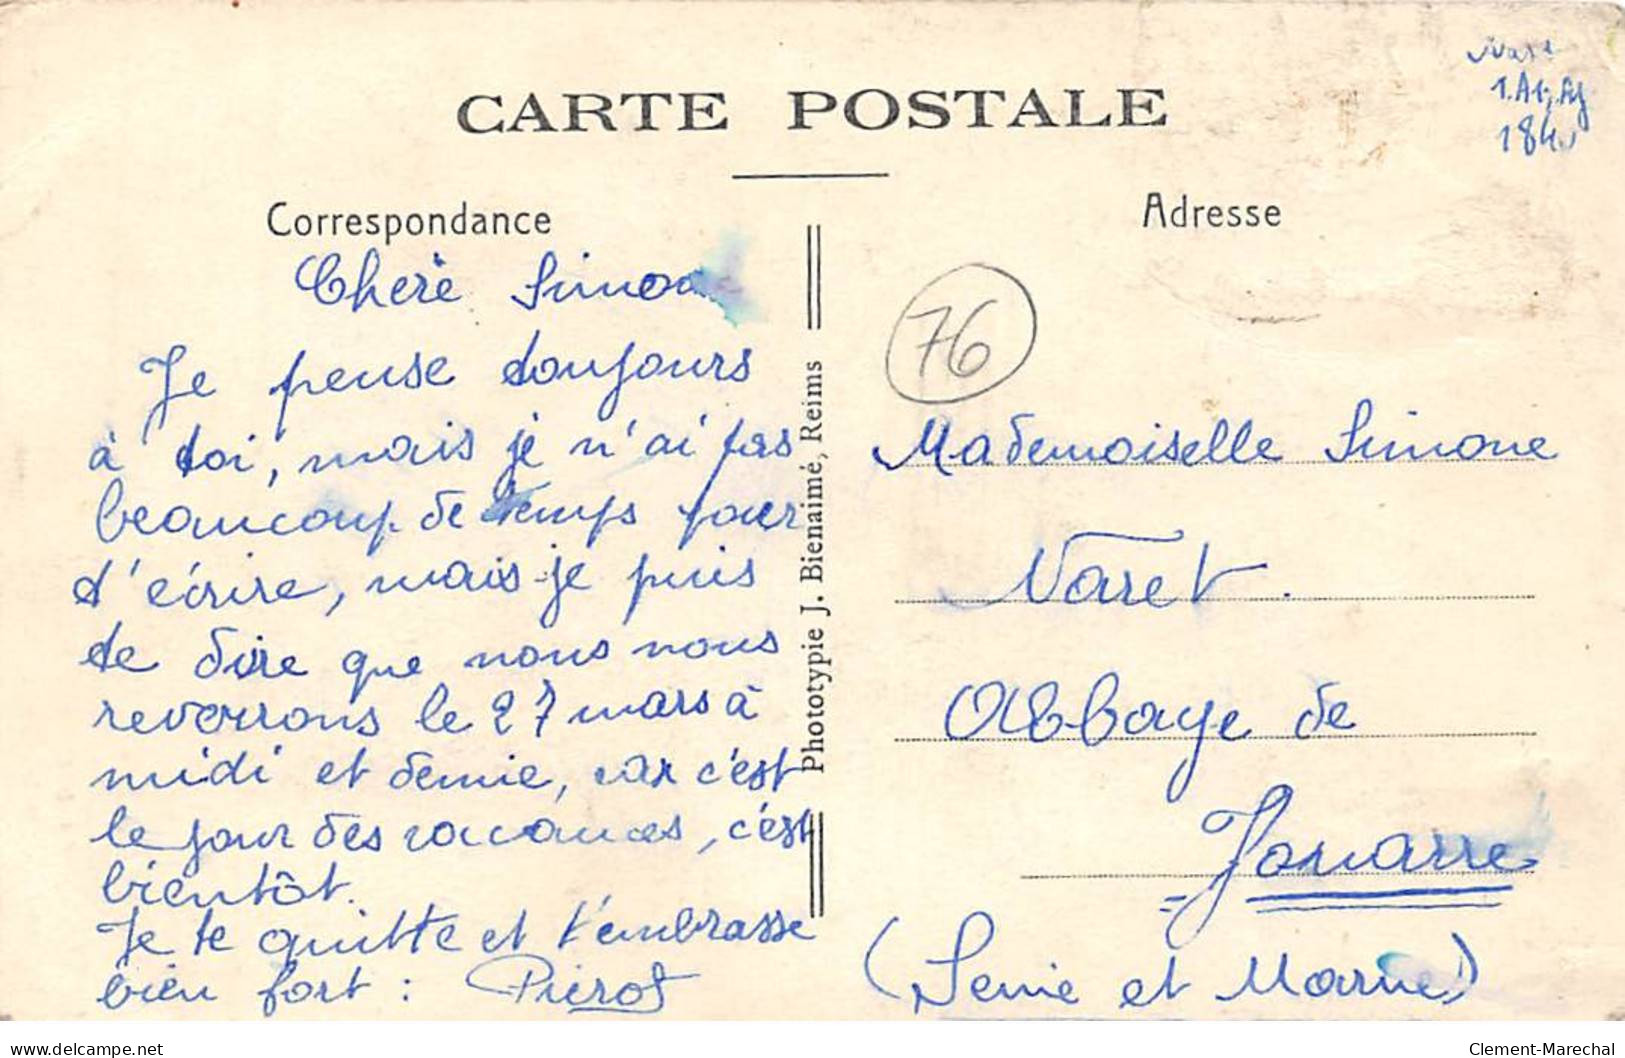 CARTE POSTALE
Correspondance
Chère Simone
Je pense toujours
à toi, mais je n'ai pas
beaucoup de temps pour
t'écrire, mais je puis
te dire que nous nous
reverrons le 27 mars à
midi et demie, car c'est
le jour des vacances, c'est
bientôt.
Je te quitte et t'embrasse
bien fort : Pierrot
Phototypie J. Bienaimé, Reims
Adresse
76
Mademoiselle Simone
Naret.
Abbaye de
Jouarre
(Seine et Marne)
delcampe.net
Clement-Marechal